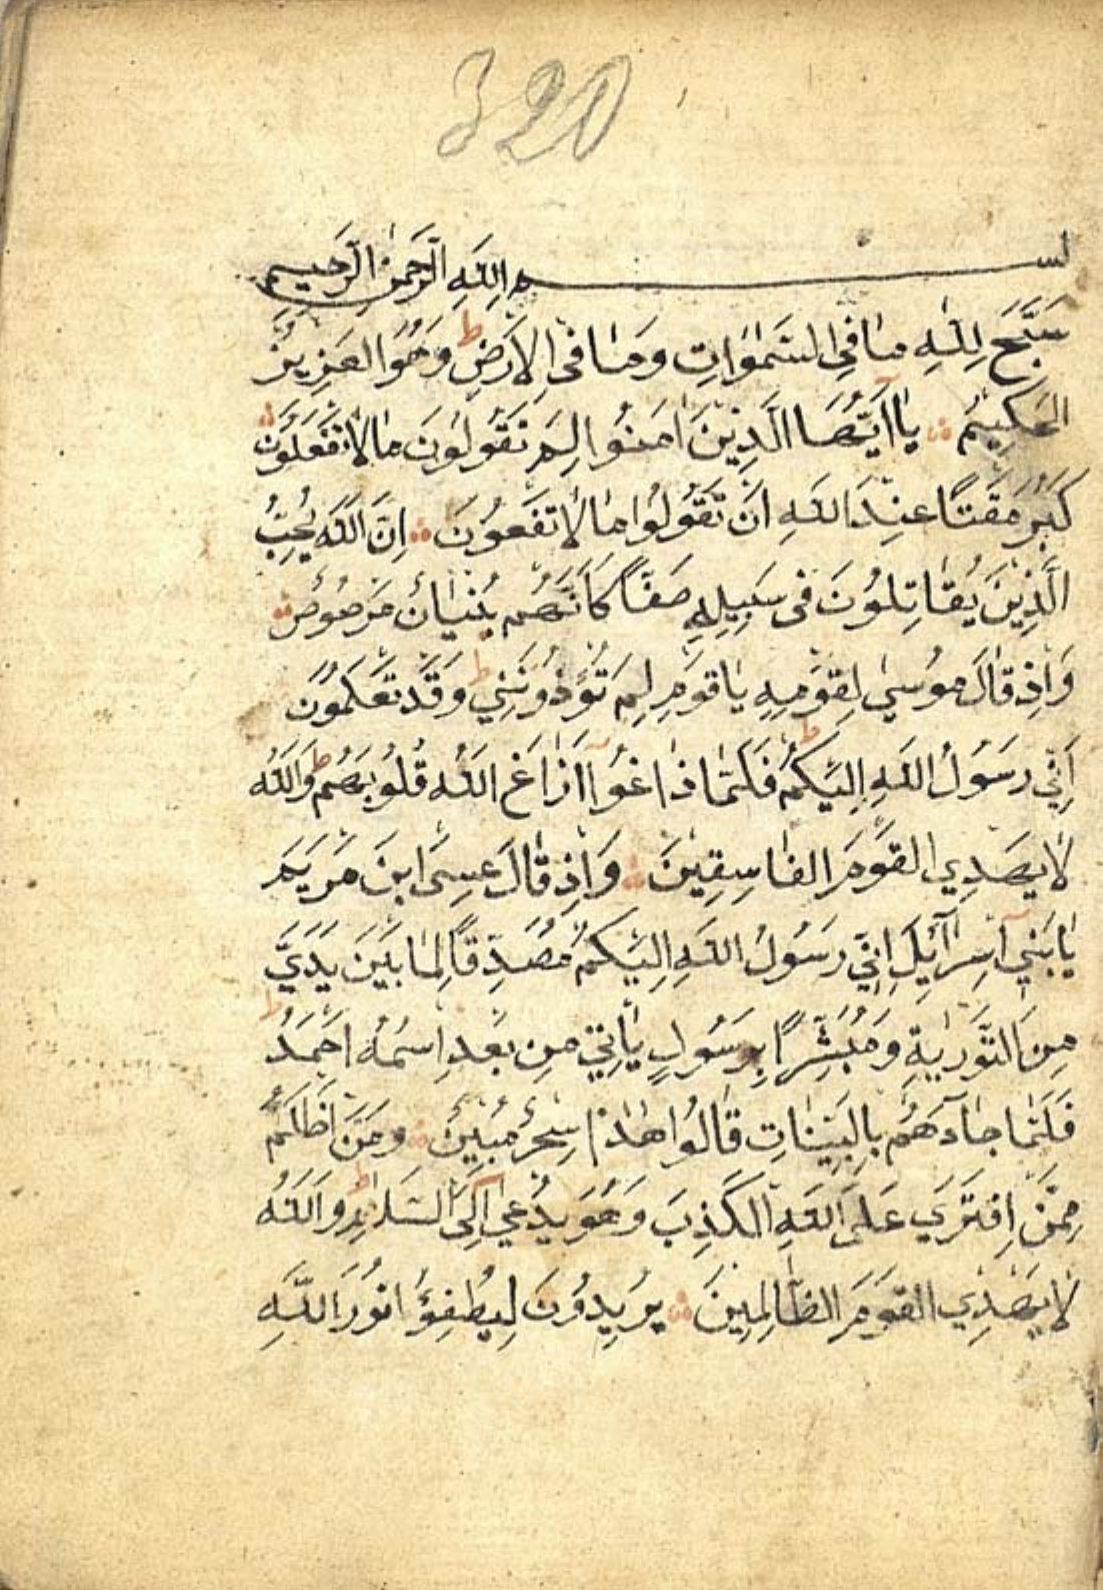 320
بسم الله الرحمن الرحيم
سَبَّحَ لِلّٰهِ مَا فِي السَّمٰوَاتِ وَمَا فِي الْاَرْضِ ط وَهُوَ الْعَزِيزُ
الْحَكِيمُ يَا اَيُّهَا الَّذِينَ اٰمَنُوا لِمَ تَقُولُونَ مَا لَا تَفْعَلُونَ
كَبُرَ مَقْتًا عِنْدَ اللّٰهِ اَنْ تَقُولُوا مَا لَا تَفْعَوُنَ اِنَّ اللّٰهَ يُحِبُّ
الَّذِينَ يُقَاتِلُونَ فِي سَبِيلِهِ صَفًّا كَاَنَّهُمْ بُنْيَانٌ مَرْصُوصٌ
وَاِذْ قَالَ مُوسٰي لِقَوْمِهِ يَا قَوْمِ لِمَ تُؤْذُونَنِي ط وَقَدْ تَعْلَمُونَ
اَنِّي رَسُولُ اللّٰهِ اِلَيْكُمْ ط فَلَمَّا ذَاغُوا اَزَاغَ اللّٰهُ قُلُوبَهُمْ ط وَاللّٰهُ
لَا يَهْدِي الْقَوْمَ الْفَاسِقِينَ وَاِذْ قَالَ عِسَى ابْنَ مَرْيَمَ
يَا بَنِي اِسْرَآئِلَ اِنِّي رَسُولُ اللّٰهِ اِلَيْكُمْ مُصَدِّقًا لِمَا بَيْنَ يَدَيَّ
مِنَ التَّوْرٰيةِ وَمُبَشِّرًا بِرَسُولٍ يَأْتِي مِنْ بَعْدِ اسْمُهُ اَحْمَدُ ط
فَلَمَّا جَاءَهُمْ بِالْبَيِّنَاتِ قَالُوا هٰذَا سِحْرٌ مُبِينٌ وَمَنْ اَظْلَمُ
مِمَّنْ اِفْتَرَي عَلَى اللّٰهِ الْكَذِبَ وَهُوَ يُدْعٰي اِلَى السَلَامِ ط وَاللّٰهُ
لَا يَهْدِي الْقَوْمَ الظَّالِمِينَ يُرِيدُونَ لِيُطْفِؤُا نُورَ اللّٰهِ